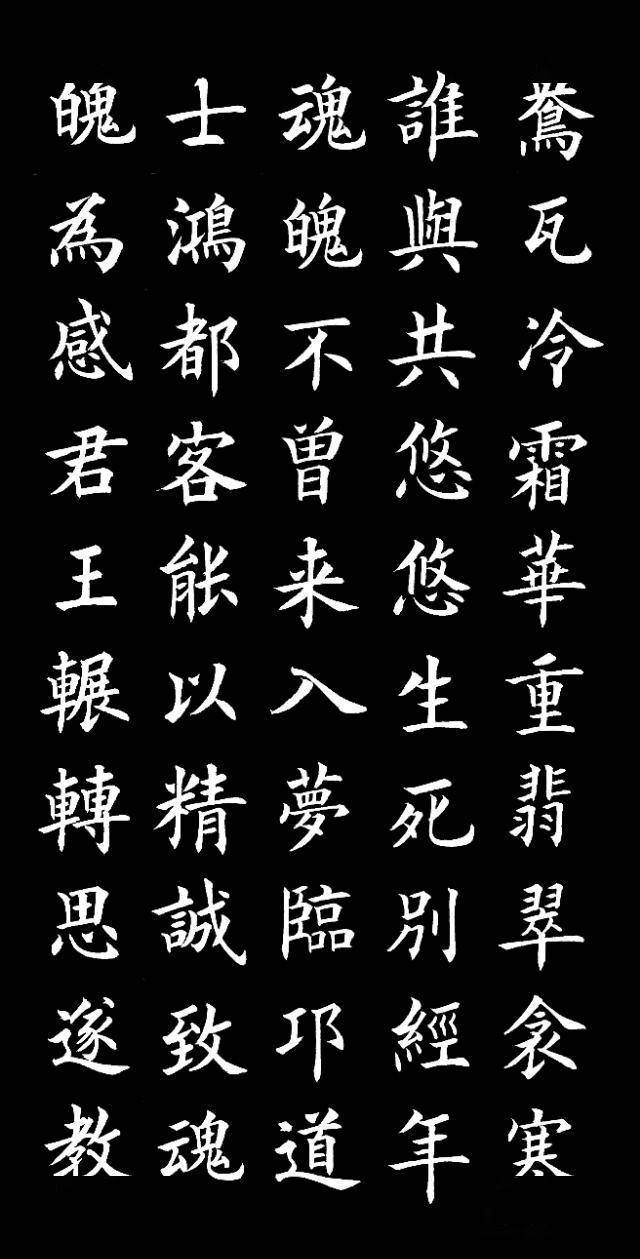 鴛瓦冷霜華重翡翠衾寒
誰與共悠悠生死別經年
魂魄不曾来入夢臨邛道
士鴻都客能以精誠致魂
魄為感君王輾轉思遂教